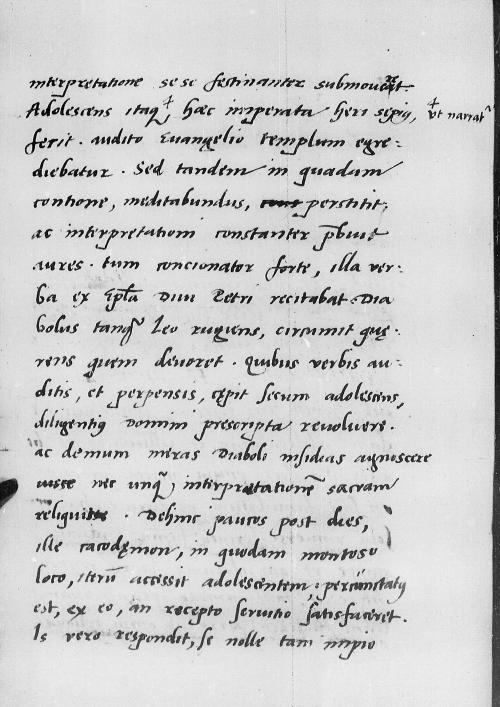 interpretatione sese festinanter submoueret.
Adolescens itaq⁊, hæc imperata heri sępiꝰ, ut narrat᷑
fecit. audito Euangelio templum egre-
diebatur. Sed tandem in quadam
contione, meditabundus, perstitit,
ac interpretationi constanter p̄buit
aures. tum concionator forte, illa ver-
ba ex Ep̄la Diui Petri recitabat. Dia
bolus tanq̃ Leo rugiens, circumit quę-
rens quem deuoret. Quibus verbis au-
ditis, et perpensis, cępit secum adolescens,
diligentiꝰ Domini prescripta reuoluere.
ac demum meras Diaboli insidias agnoscere
nec unq̃, interpretationē sacram
reliquit. Dehinc paucos post dies,
ille cacodęmon, in quodam montoso
loco, iterū accessit adolescentem; percunctatꝰ
est, ex eo, an recepto seruitio satisfaceret.
Is vero respondit, se nolle tam impio